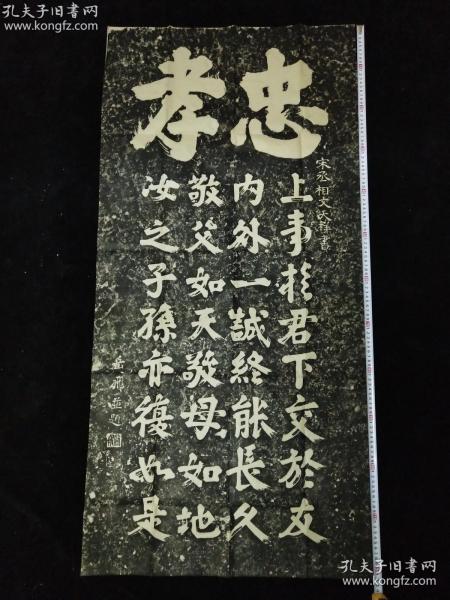 孔夫子旧书网
www.kongfz.com
孔夫子旧书网
www.kongfz.com
忠孝
宋丞相文天祥書
上事扵君下交於友
內外一誠終能長久
敬父如天敬母如地
汝之子孫亦復如是
岳飛
孔夫子旧书网
www.kongfz.com